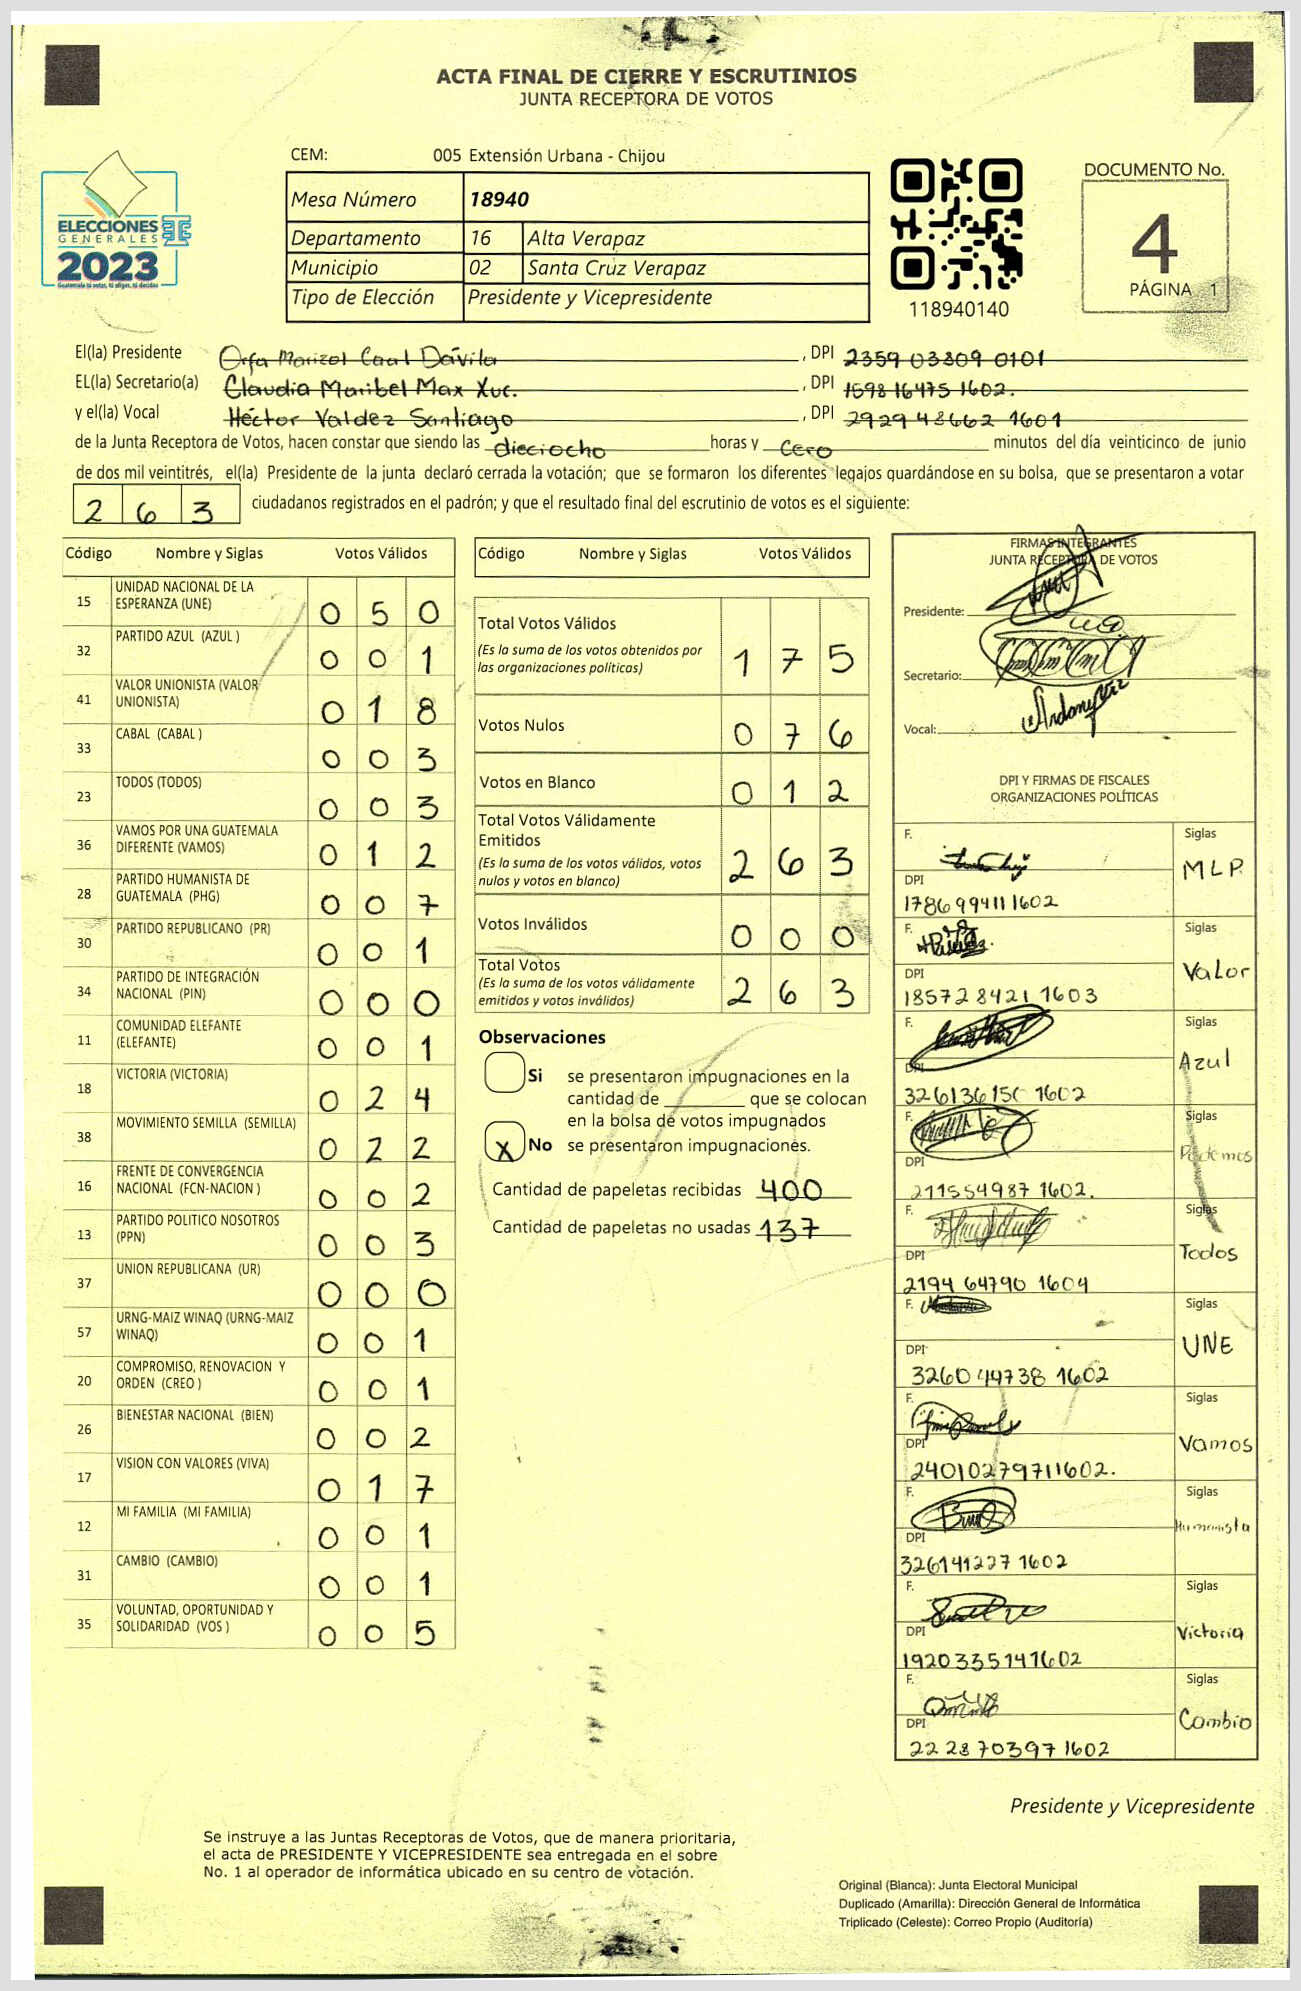 ACTA FINAL DE CIERRE Y ESCRUTINIOS
JUNTA RECEPTORA DE VOTOS
CEM: 005 Extensión Urbana - Chijou
ELECCIONES
GENERALES
2023
Guatemala tú votas, tú eliges, tú decides
Mesa Número 18940
Departamento 16 Alta Verapaz
Municipio 02 Santa Cruz Verapaz
Tipo de Elección Presidente y Vicepresidente
118940140
DOCUMENTO No.
4
PÁGINA 1
El(la) Presidente Orfa Marizol Caal Dávila, DPI 2359 03809 0101
EL(la) Secretario(a) Claudia Maribel Max Xuc., DPI 1598 16475 1602.
y el(la) Vocal Héctor Valdez Santiago, DPI 2929 48662 1601
de la Junta Receptora de Votos, hacen constar que siendo las dieciocho horas y cero minutos del día veinticinco de junio
de dos mil veintitrés, el(la) Presidente de la junta declaró cerrada la votación; que se formaron los diferentes legajos guardándose en su bolsa, que se presentaron a votar
263 ciudadanos registrados en el padrón; y que el resultado final del escrutinio de votos es el siguiente:
Código Nombre y Siglas Votos Válidos
15 UNIDAD NACIONAL DE LA ESPERANZA (UNE) 0 5 0
32 PARTIDO AZUL (AZUL ) 0 0 1
41 VALOR UNIONISTA (VALOR UNIONISTA) 0 1 8
33 CABAL (CABAL ) 0 0 3
23 TODOS (TODOS) 0 0 3
36 VAMOS POR UNA GUATEMALA DIFERENTE (VAMOS) 0 1 2
28 PARTIDO HUMANISTA DE GUATEMALA (PHG) 0 0 7
30 PARTIDO REPUBLICANO (PR) 0 0 1
34 PARTIDO DE INTEGRACIÓN NACIONAL (PIN) 0 0 0
11 COMUNIDAD ELEFANTE (ELEFANTE) 0 0 1
18 VICTORIA (VICTORIA) 0 2 4
38 MOVIMIENTO SEMILLA (SEMILLA) 0 2 2
16 FRENTE DE CONVERGENCIA NACIONAL (FCN-NACION ) 0 0 2
13 PARTIDO POLITICO NOSOTROS (PPN) 0 0 3
37 UNION REPUBLICANA (UR) 0 0 0
57 URNG-MAIZ WINAQ (URNG-MAIZ WINAQ) 0 0 1
20 COMPROMISO, RENOVACION Y ORDEN (CREO ) 0 0 1
26 BIENESTAR NACIONAL (BIEN) 0 0 2
17 VISION CON VALORES (VIVA) 0 1 7
12 MI FAMILIA (MI FAMILIA) 0 0 1
31 CAMBIO (CAMBIO) 0 0 1
35 VOLUNTAD, OPORTUNIDAD Y SOLIDARIDAD (VOS ) 0 0 5
Código Nombre y Siglas Votos Válidos
Total Votos Válidos
(Es la suma de los votos obtenidos por las organizaciones políticas) 1 7 5
Votos Nulos 0 7 6
Votos en Blanco 0 1 2
Total Votos Válidamente Emitidos
(Es la suma de los votos válidos, votos nulos y votos en blanco) 2 6 3
Votos Inválidos 0 0 0
Total Votos
(Es la suma de los votos válidamente emitidos y votos inválidos) 2 6 3
Observaciones
Si se presentaron impugnaciones en la
cantidad de ________ que se colocan
en la bolsa de votos impugnados
X No se presentaron impugnaciones.
Cantidad de papeletas recibidas 400
Cantidad de papeletas no usadas 137
FIRMAS INTEGRANTES
JUNTA RECEPTORA DE VOTOS
Presidente:
Secretario:
Vocal:
DPI Y FIRMAS DE FISCALES
ORGANIZACIONES POLÍTICAS
F. Siglas
MLP
DPI
1786 99411 1602
F. Siglas
Valor
DPI
18572 8421 1603
F. Siglas
Azul
DPI
326136150 1602
F. Siglas
Podemos
DPI
211554987 1602.
F. Siglas
Todos
DPI
2194 64790 1604
F. Siglas
UNE
DPI
3260 44738 1602
F.
Vamos
DPI
2401027971 1602.
F. Siglas
Humanista
DPI
326141227 1602
F. Siglas
Victoria
DPI
1920335141602
F. Siglas
Cambio
DPI
22 28 70397 1602
Presidente y Vicepresidente
Se instruye a las Juntas Receptoras de Votos, que de manera prioritaria,
el acta de PRESIDENTE Y VICEPRESIDENTE sea entregada en el sobre
No. 1 al operador de informática ubicado en su centro de votación.
Original (Blanca): Junta Electoral Municipal
Duplicado (Amarilla): Dirección General de Informática
Triplicado (Celeste): Correo Propio (Auditoría)